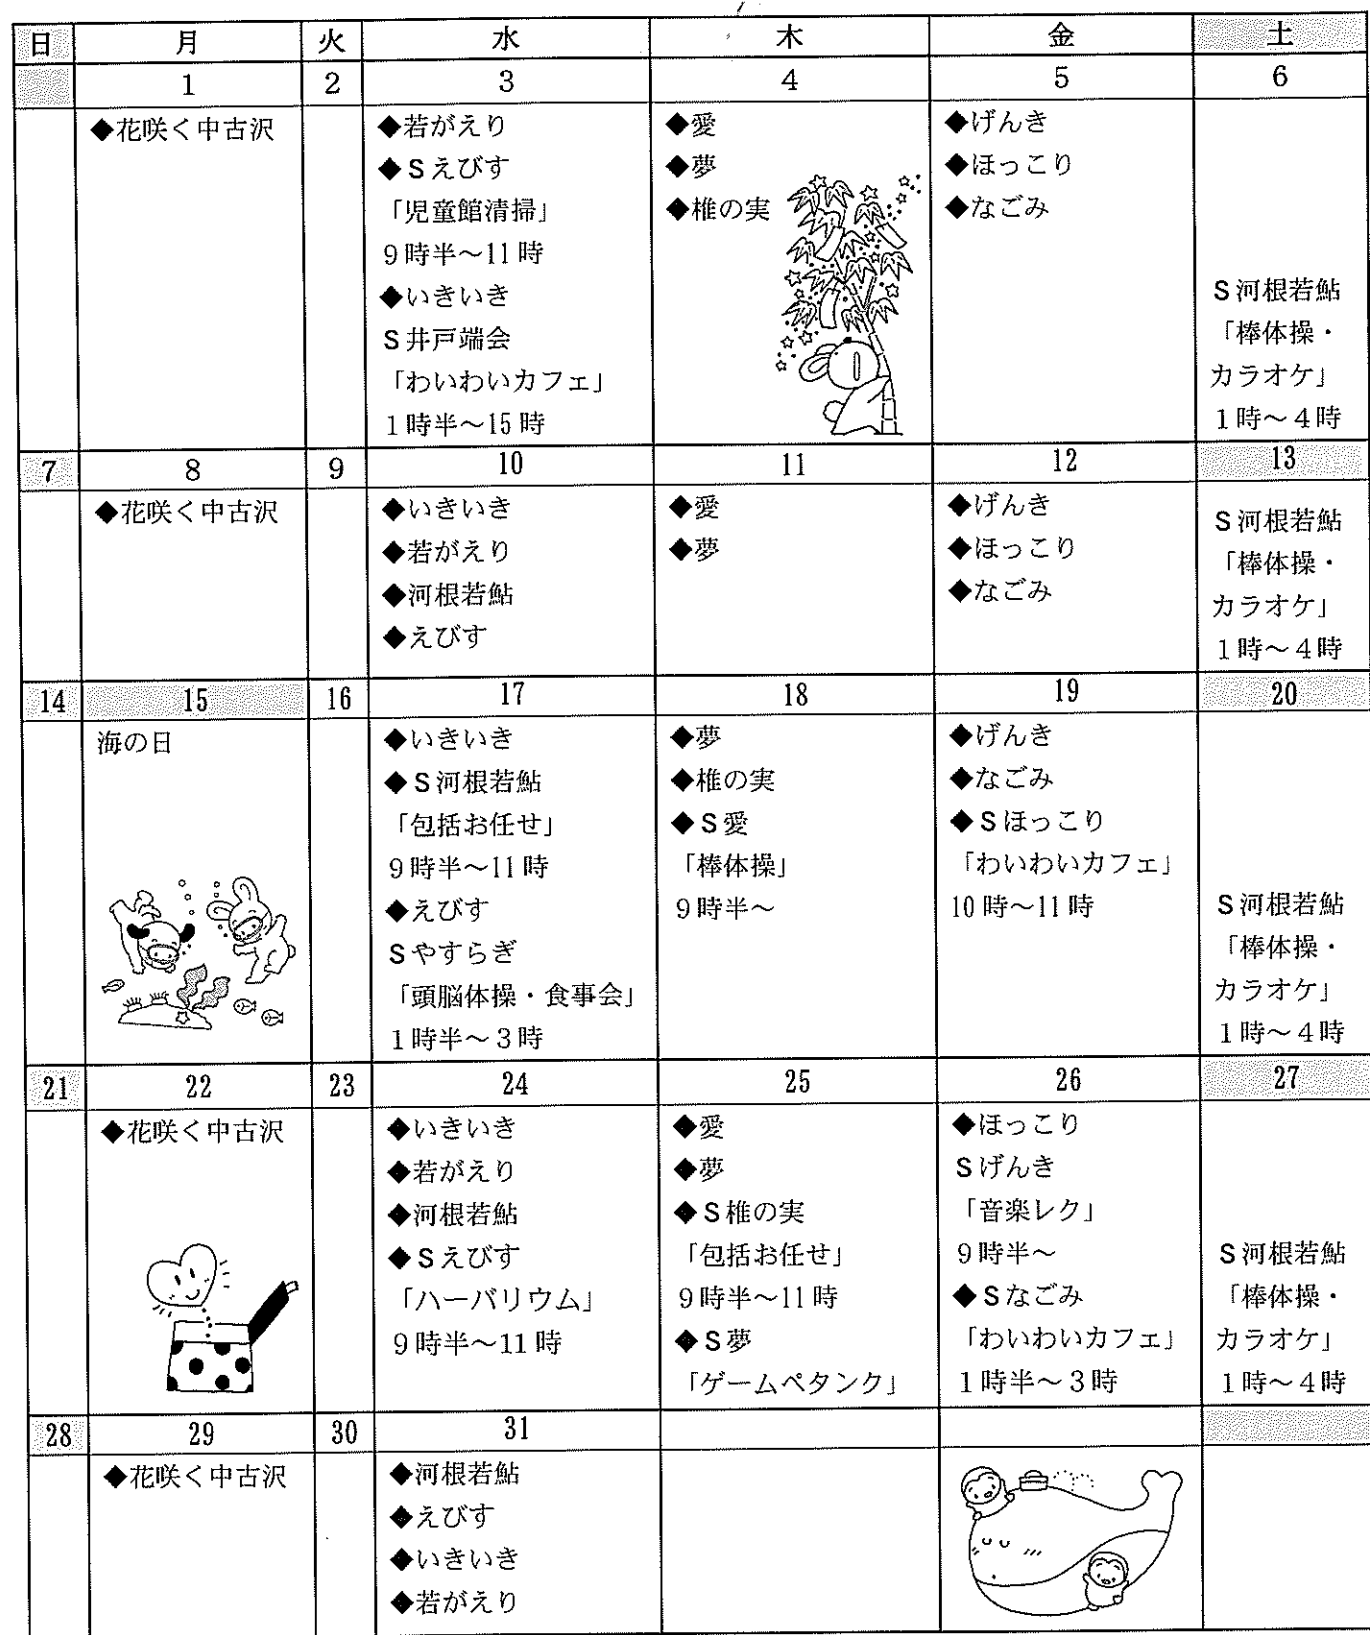 日 月 火 水 木 金 土
1 2 3 4 5 6
◆花咲く中古沢
◆若がえり
◆Sえびす
「児童館清掃」
9時半～11時
◆いきいき
S井戸端会
「わいわいカフェ」
1時半～15時
◆愛
◆夢
◆椎の実
◆げんき
◆ほっこり
◆なごみ
S河根若鮎
「棒体操・
カラオケ」
1時～4時
7 8 9 10 11 12 13
◆花咲く中古沢
◆いきいき
◆若がえり
◆河根若鮎
◆えびす
◆愛
◆夢
◆げんき
◆ほっこり
◆なごみ
S河根若鮎
「棒体操・
カラオケ」
1時～4時
14 15 16 17 18 19 20
海の日
◆いきいき
◆S河根若鮎
「包括お任せ」
9時半～11時
◆えびす
Sやすらぎ
「頭脳体操・食事会」
1時半～3時
◆夢
◆椎の実
◆S愛
「棒体操」
9時半～
◆げんき
◆なごみ
◆Sほっこり
「わいわいカフェ」
10時～11時
S河根若鮎
「棒体操・
カラオケ」
1時～4時
21 22 23 24 25 26 27
◆花咲く中古沢
◆いきいき
◆若がえり
◆河根若鮎
◆Sえびす
「ハーバリウム」
9時半～11時
◆愛
◆夢
◆S椎の実
「包括お任せ」
9時半～11時
◆S夢
「ゲームペタンク」
◆ほっこり
Sげんき
「音楽レク」
9時半～
◆Sなごみ
「わいわいカフェ」
1時半～3時
S河根若鮎
「棒体操・
カラオケ」
1時～4時
28 29 30 31
◆花咲く中古沢
◆河根若鮎
◆えびす
◆いきいき
◆若がえり